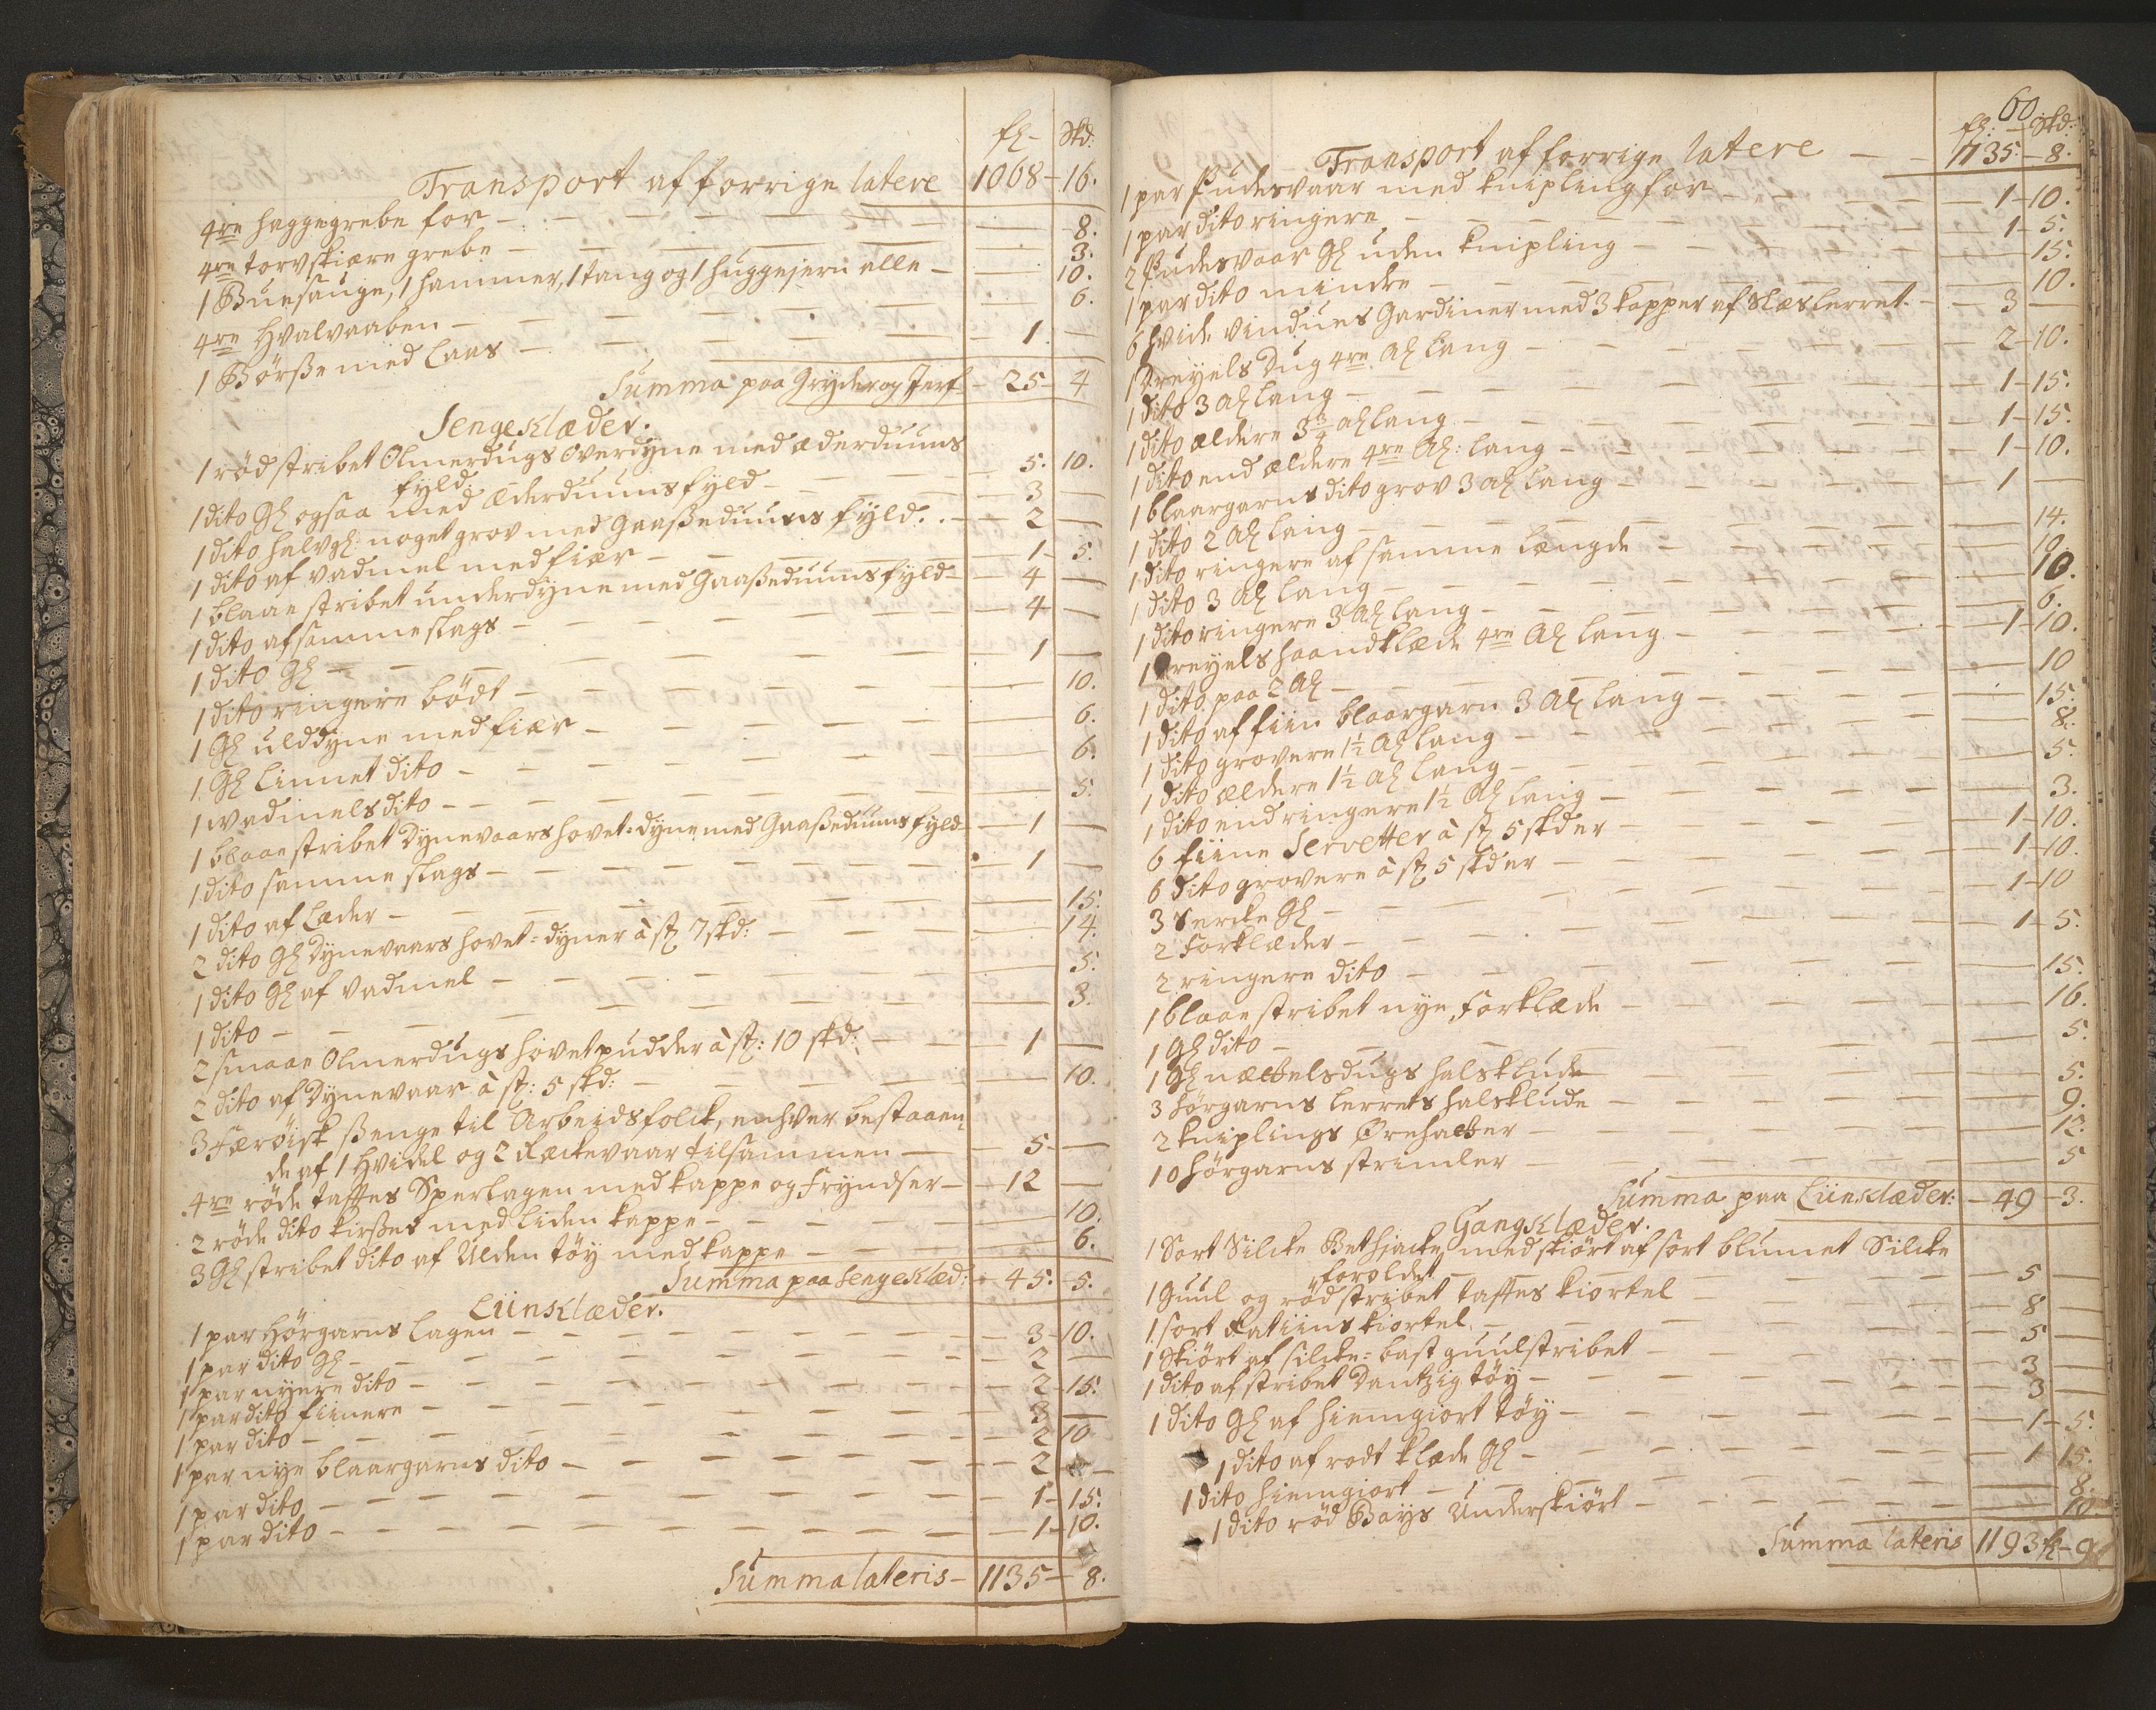 fl- Skd:
Transport af forrige latere 1068-16.
4re haggegrebe for - 8.
4re torvskiære grebe - 3.
1 Buesauge, 1 hammer, 1 tang og 1 huggejern alle - 10.
4re Hvalvaaben - 6.
1 Børsse med Laas - 1.
Summa paa Gryder og Jerf - 25-4
Sengeklæder.
1 rød stribet Olmerdugs Overdyne med æderduuns
fyld. 5. 10.
1 dito Gl ogsaa med Æderduuns fyld - 3
1 dito halvgl: noget grov med Gaasseduuns fyld. - 2
1 dito af vadmel med fiær - 1-5.
1 blaae stribet underdyne med Gaasseduuns fyld - 4
1 dito af samme slags - 4
1 dito Gl - 1
1 dito ringere bødt - 10.
1 Gl ulddyne med fiær - 6.
1 Gl Linnet dito - 6.
1 wadmels dito - 5.
1 blaae stribet Dynevaars hovet=dyne med Gaasseduuns fyld 1
1 dito samme slags - 1
1 dito af Læder - 15.
2 dito Gl Dynevaars hovet=dyner à st 7 skd: - 14.
1 dito Gl af Vadmel - 5.
1 dito - 3.
2 smaae Olmerdugs hovetpudder à st: 10 skd: - 1
2 dito af Dynevaar à st: 5 skd: - 10.
3 Færøisk Ssenge til Arbeidsfolck, enhver bestaaen=
de af 1 Hvidel og 2 Reckevaar tilsammen - 5-
4re røde taftes Sperlagen med kappe og Fryndser - 12
2 røde dito kirsses med liden kappe - 10.
3 Gl stribet dito af Ulden tøy med kappe - 6.
Summa paa Sengeklæd: 45.-5.
Liinklæder.
1 par Hørgarns Lagen - 3-10.
1 par dito Gl - 2
1 par nyere dito - 2-15.
1 par dito fiinere - 3
1 par dito - 2 10
1 par nye blaargarns dito - 2
1 par dito - 1-15.
1 par dito - 1-10.
Summa lateris - 1135-8.
60
fl: - Skd:
Transport af forrige latere - 1135.-8.
1 par Pudesvaar med knipling for - 1-10.
1 par dito ringere - 1-5.
2 Pudesvaar Gl uden knipling - 15.
1 par dito mindre - 10.
6 hvide vindues Gardiner med 3 kapper af Slæslerret - 3
1 Dreyels Dug 4re Al lang - 2-10.
1 dito 3 Al lang - 1-15.
1 dito ældere 3 3/4 al lang - 1-15.
1 dito end ældere 4re Al: lang - 1-10.
1 blaargarns dito grov 3 al lang - 1
1 dito 2 Al lang - 14.
1 dito ringere af samme længde - 10.
1 dito 3 Al lang - 10.
1 dito ringere 3 Al lang - 6.
1 Dreyels haandklæde 4re Al lang - 1-10.
1 dito paa 2 Al - 10
1 dito af fiin blaargarn 3 Al lang - 15.
1 dito grovere 1 1/2 Al lang - 8.
1 dito ældere 1 1/2 al lang - 5.
1 dito end ringere 1 1/2 Al lang - 3.
6 fiine Servetter à st 5 skder - 1-10.
6 dito grovere à st 5 skder - 1-10.
3 Sercke Gl - 1-10
2 Forklæder - 1-5.
2 ringere dito - 15.
1 blaae stribet nye Forklæde - 16.
1 Gl dito - 5.
1 Gl næbelsdugs halsklude - 5.
3 hørgarns lerrets halsklude - 9.
2 kniplings Ørehætter - 12.
10 Hørgarns strimler - 5
Summa paa Liinklæder: - 49-3.
Gangklæder.
1 Sort Silcke Bethjacke med skiørt af sort blumet Silcke
foroldet - 5
1 Guul og rød stribet taftes kiortel - 8
1 sort Ratiins kiortel - 5
1 Skiørt af silcke=bast guulstribet - 3
1 dito af stribet Dantzig tøy - 3
1 dito Gl af hiemgiort tøy - 1-5.
1 dito af rødt klæde Gl - 1 15.
1 dito hiemgiort - 8.
1 dito rød Bays Underskiört - 10.
Summa lateris 1193 fl-9